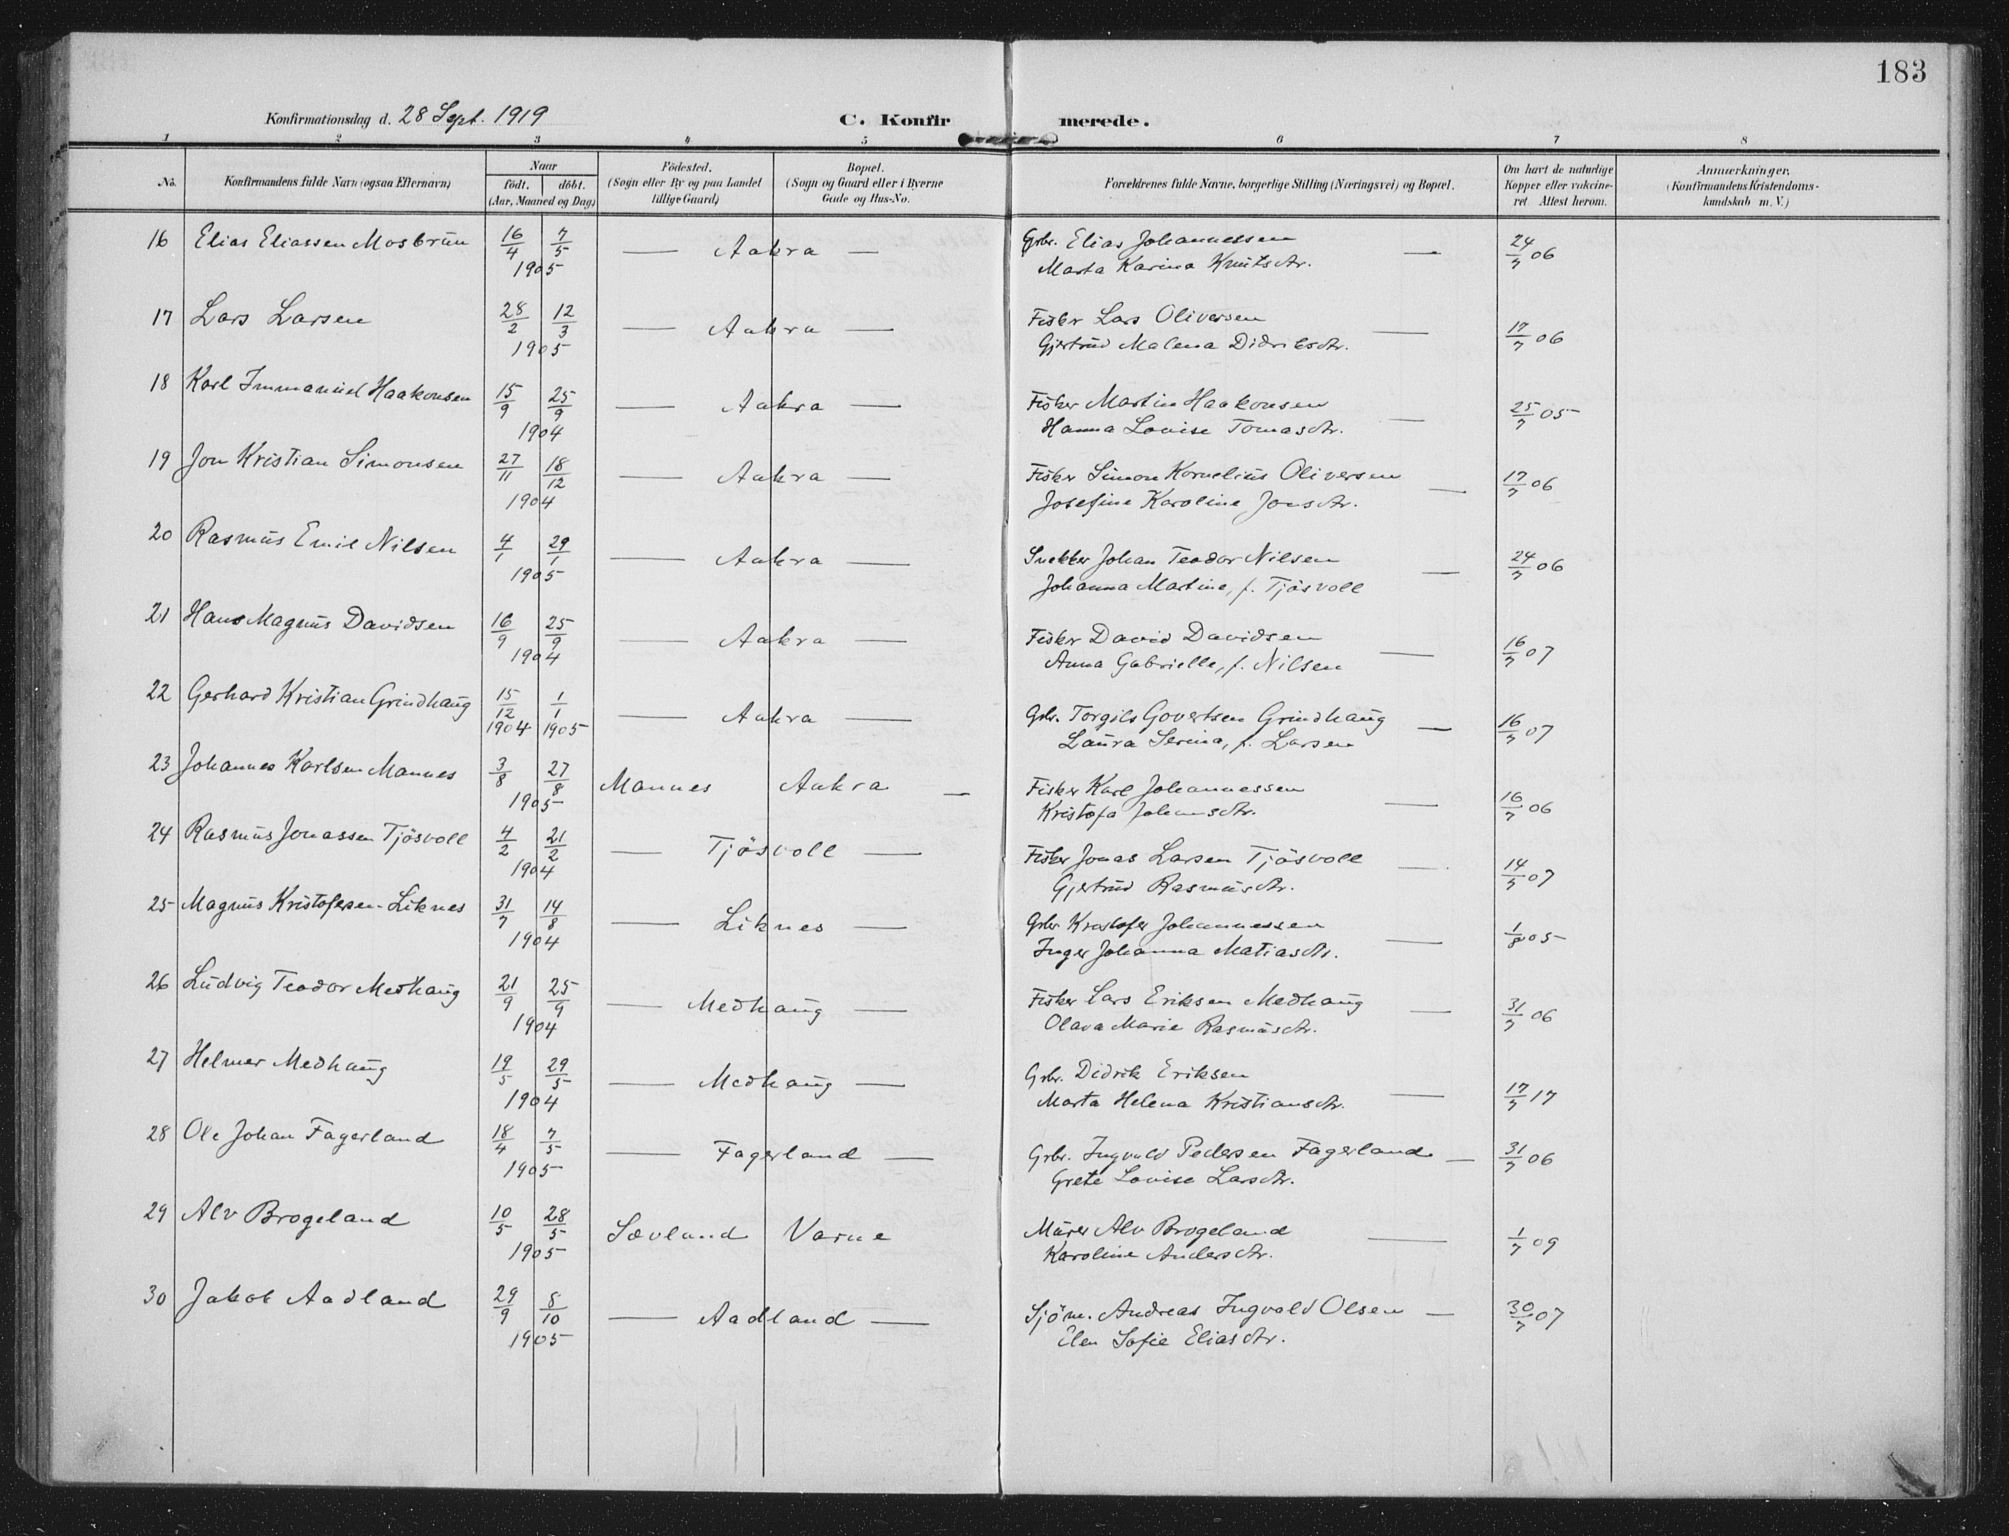 183
Konfirmationsdag d. 28 Sept. 1919 C. Konfirmerede.
1 2 3 4 5 6 7 8
No. Konfirmandens fulde Navn (ogsaa Efternavn) Naar født. døbt. (Aar, Maaned og Dag) Födested. (Sogn eller By og paa Landet tillige Gaard) Bopæl. (Sogn og Gaard eller i Byerne Gade og Hus-No. Forældrenes fulde Navne, borgerlige Stilling (Næringsvei) og Bopæl. Om havt de naturlige Kopper eller vakcineret Attest herom. Anmærkninger. (Konfirmandens Kristendomskundskab m. V.)
16 Elias Eliassen Mosbrun 16/4 7/5 — Aakra — Grbr. Elias Johannessen — 24/7 06
1905 Marta Karina Knutsdtr.
17 Lars Larsen 28/2 12/3 — Aakra — Fisker Lars Oliversen — 17/7 06
1905 Gjertrud Malena Didriksdtr.
18 Karl Immanuel Haakonsen 15/9 25/9 — Aakra — Fisker Martin Haakonsen — 25/7 05
1904 Hanna Lovise Tomasdtr.
19 Jon Kristian Simonsen 27/11 18/12 — Aakra — Fisker Simon Kornelius Oliversen — 17/7 06
1904 Josefine Karoline Jonsdtr.
20 Rasmus Emil Nilsen 4/1 29/1 — Aakra — Snekker Johan Teodor Nilsen — 24/7 06
1905 Johanna Martine, f. Tjösvoll
21 Hans Magnus Davidsen 16/9 25/9 — Aakra — Fisker David Davidsen — 16/7 07
1904 Anna Gabrielle, f. Nilsen
22 Gerhard Kristian Grindhaug 15/12 1/1 — Aakra — Grbr. Torgils Govertsen Grindhaug — 16/7 07
1904 1905 Laura Serina, f. Larsen
23 Johannes Karlsen Mannes 3/8 27/8 Mannes Aakra — Fisker Karl Johannessen — 16/7 06
1905 Kristofa Johansdtr.
24 Rasmus Jonassen Tjösvoll 4/2 21/2 — Tjösvoll — Fisker Jonas Larsen Tjösvoll — 14/7 07
1904 Gjertrud Rasmusdtr.
25 Magnus Kristofersen Liknes 31/7 14/8 — Liknes — Grbr. Kristofer Johannessen — 1/8 05
1904 Inger Johanna Matiasdtr.
26 Ludvig Teodor Medhaug 21/9 25/9 — Medhaug — Fisker Lars Eriksen Medhaug — 31/7 06
1904 Olava Marie Rasmusdtr.
27 Helmer Medhaug 19/5 29/5 — Medhaug — Grbr. Didrik Eriksen — 17/7 17
1904 Marta Helena Kristiansdtr.
28 Ole Johan Fagerland 18/4 7/5 — Fagerland — Grbr. Ingvald Pedersen Fagerland — 31/7 06
1905 Grete Lovise Larsdtr.
29 Alv Brogeland 10/5 28/5 Sævland Varne Murer Alv Brogeland — 1/7 09
1905 Karoline Andersdtr.
30 Jakob Aadland 29/9 8/10 — Aadland — Sjöm. Andreas Ingvald Olsen — 30/7 07
1905 Elen Sofie Eliasdtr.